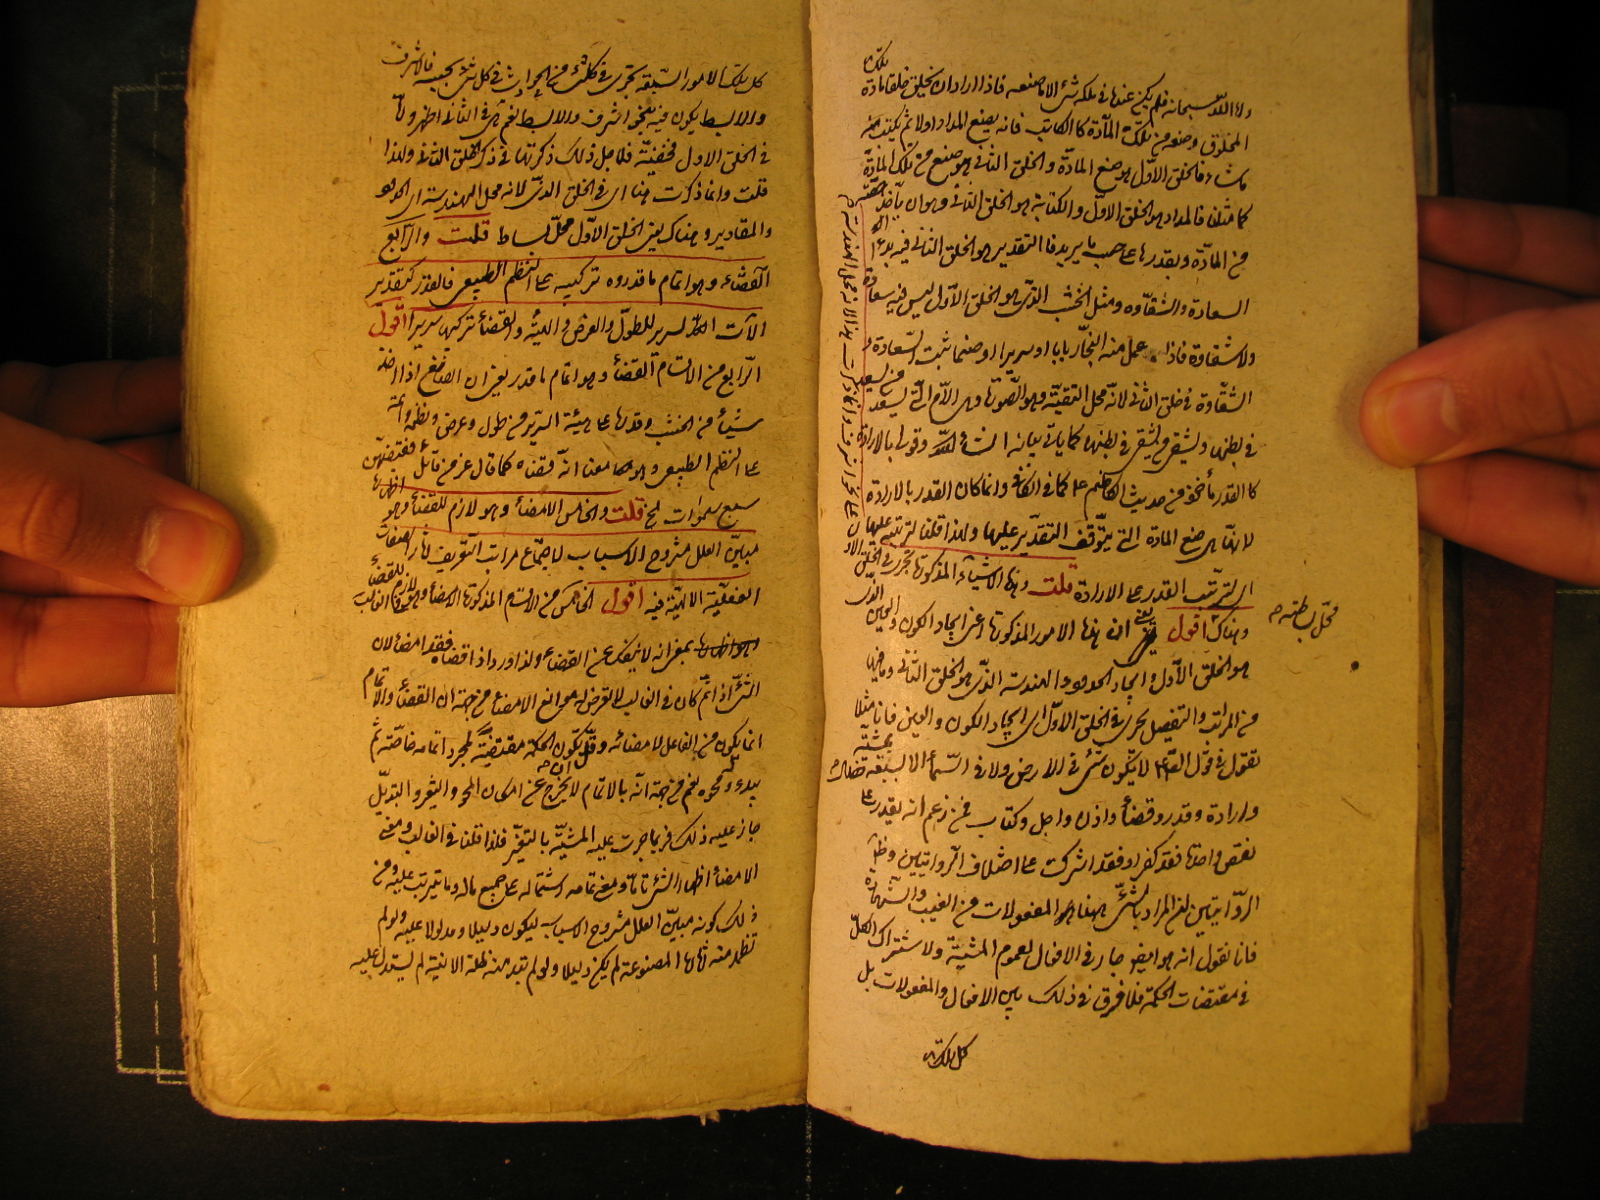 ولا الله سبحانه فلم يكن عندها في ملكه شئ الا ما صنعه فاذا اراد ان يخلق خلقا مادة
المخلوق وصنعه من تلك المادة كالكاتب فانه يصنع المداد اولا ثم يكتب منه
ما شاء فالخلق الاول هو صنع المادة والخلق الثاني هو صنع من تلك المادة
كما مثلنا فالمداد هو الخلق الاول والكتابة هو الخلق الثاني وهو ان يأخذ حصة
من المادة ويقدرها على حسب ما يريد فالتقدير هو الخلق الثاني فيه بدء
السعادة والشقاوة ومثل الخشب الذي هو الخلق الاول ليس فيه سعادة
ولا شقاوة فاذا عمل منه النجار بابا او سريرا او صنما ثبت السعادة و
الشقاوة في خلق الثاني لانه محل التقية وهو الصورة وهي الام التي يسعد من سعد
في بطنها ويشقى من شقى في بطنها كما يأتي بيانه انشاء الله وقولي بالارادة
كالقدر مأخوذ من حديث الكاظم ع كما في الكافي وانما كان القدر بالارادة
لانها هي صنع المادة التي يتوقف التقدير عليها ولهذا قلنا لترتبه عليها
اي لترتب القدر على الارادة قلت وهذه الاشياء المذكورة تجري في الخلق الاول
وهناك اقول يعني ان هذه الامور المذكورة اعني ايجاد الكون والعين الذي
هو الخلق الاول وايجاد الحدود والهندسة الذي هو الخلق الثاني وما فيها
من المراتب والتفصيل يجري في الخلق الاول اي ايجاد الكون والعين فانا مثلا
نقول في قول الصادق ع لا يكون شئ في الارض ولا في السماء الا بسبعة خصال بمشية
وارادة وقدر وقضاء واذن واجل وكتاب فمن زعم انه يقدر على
نقص واحدة فقد كفر او فقد اشرك على اختلاف الروايتين وظاهر
الروايتين ان المراد بالشئ هنا المفعولات من الغيب والشهادة
فانا نقول انه هو ايضا جار في الافعال لعموم المشية ولاشتراك الكل
في مقتضات الحكمة فلا فرق في ذلك بين الافعال والمفعولات بل
كل تلك
محل بسائط
كل تلك الامور السبعة تجري في كل شئ من الحوادث في كل شئ بحسبه فالاشرف
والابسط يكون فيه بنحو اشرف وابسط نعم هي في الثاني اظهر ولها
في الخلق الاول مخفية فلاجل ذلك ذكرتها في ذكر الخلق الثاني ولهذا
قلت وانما ذكرت هنا اي في الخلق الثاني لانه محل الهندسة اي الحدود
والمقادير وهناك يعني الخلق الاول محل بساط قلت والرابع
القضاء وهو اتمام ما قدر وتركيبه على النظم الطبيعي فالقدر كتقدير
الآت السرير للطول والعرض والهيئة والقضاء تركيبها سريرا اقول
الرابع من الاقسام القضاء وهو اتمام ما قدر يعني ان الصانع اذا اخذ
شيئا من الخشب وقدرها على هيئة السرير من طول وعرض ونظمه واتمه
على النظم الطبيعي وهو معنا انه قضاه كما قال عز من قائل فقضيهن
سبع سموات الخ قلت والخامس الامضاء وهو لازم للقضاء وهو اظهاره
مبين العلل مشروح الاسباب لاجتماع مراتب التعريف لآثار الصفات
الفعلية الالهية فيه اقول الخامس من الاقسام المذكورة الامضاء وهو لازم للقضاء في الغالب
بمعنى انه لا ينفك عن القضاء ولذا ورد اذا قضاه فقد امضاه لان
الشئ اذا تم كان في الغالب لا تعرض له موانع الامضاء من جهة ان القضاء والاتمام
انما يكون من الفاعل لامضائه وقل ان تكون الحكمة مقتضية لمجرد اتمامه خاصة ثم
يبدء ومحوه نعم من جهة انه بالاتمام لا يخرج عن امكان المحو والتغير والتبديل
جاز عليه ذلك فربما جرت عليه المشية بالتغير فلذا قلنا في الغالب ومعنى
الامضاء اظهار الشئ تاما ومعنى تمامه اشتماله على جميع ماله وما يترتب عليه ومن
ذلك كونه مبين العلل مشروح الاسباب ليكون دليلا ومدلولا عليه ولو لم
تظهر منه المصنوعة لم يكن دليلا ولو لم تبد منه الانية لم يستدل عليه